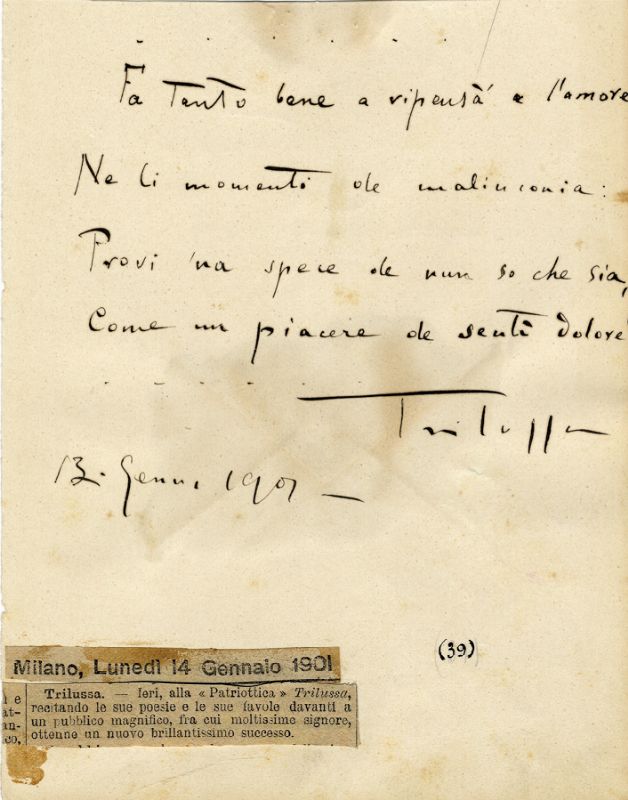 . . . . . .
Fa tanto bene a ripensà a l'amore
Ne li momenti de malinconia:
Provi 'na spece de nun so che sia,
Come un piacere de sentì dolore
. . . . .
Trilussa
13. Genn. 1901 —
(39)
Milano, Lunedì 14 Gennaio 1901
Trilussa. — Ieri, alla « Patriottica » Trilussa,
recitando le sue poesie e le sue favole davanti a
un pubblico magnifico, fra cui moltissime signore,
ottenne un nuovo brillantissimo successo.
i e
at-
an-
co,